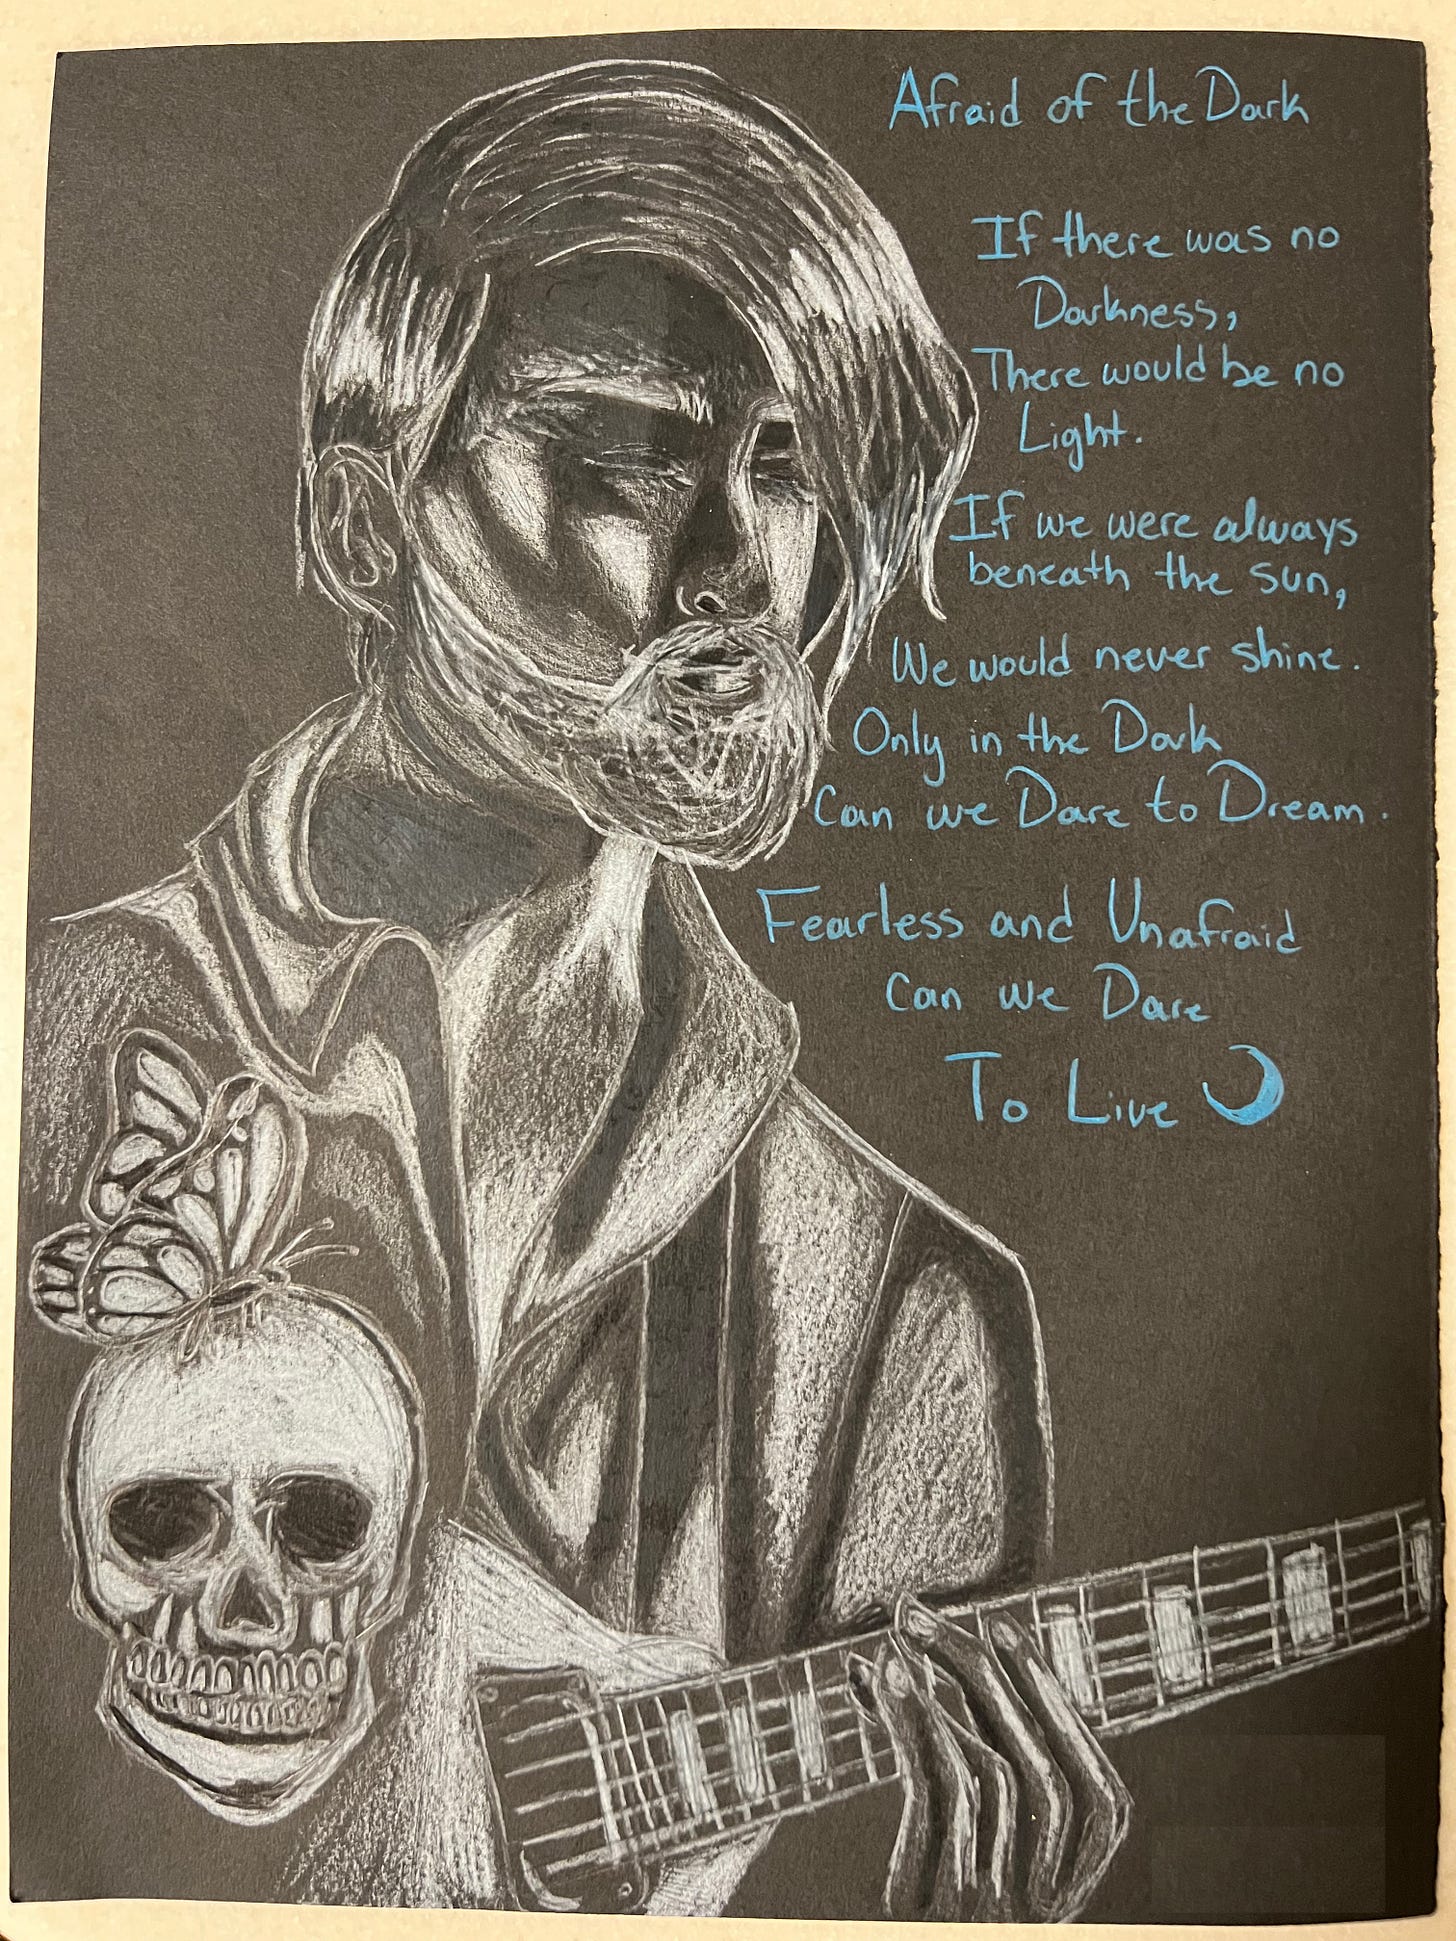 Afraid of the Dark
If there was no
Darkness,
There would be no
Light.
If we were always
beneath the sun,
We would never shine.
Only in the Dark
Can we Dare to Dream.
Fearless and Unafraid
Can we Dare
To Live